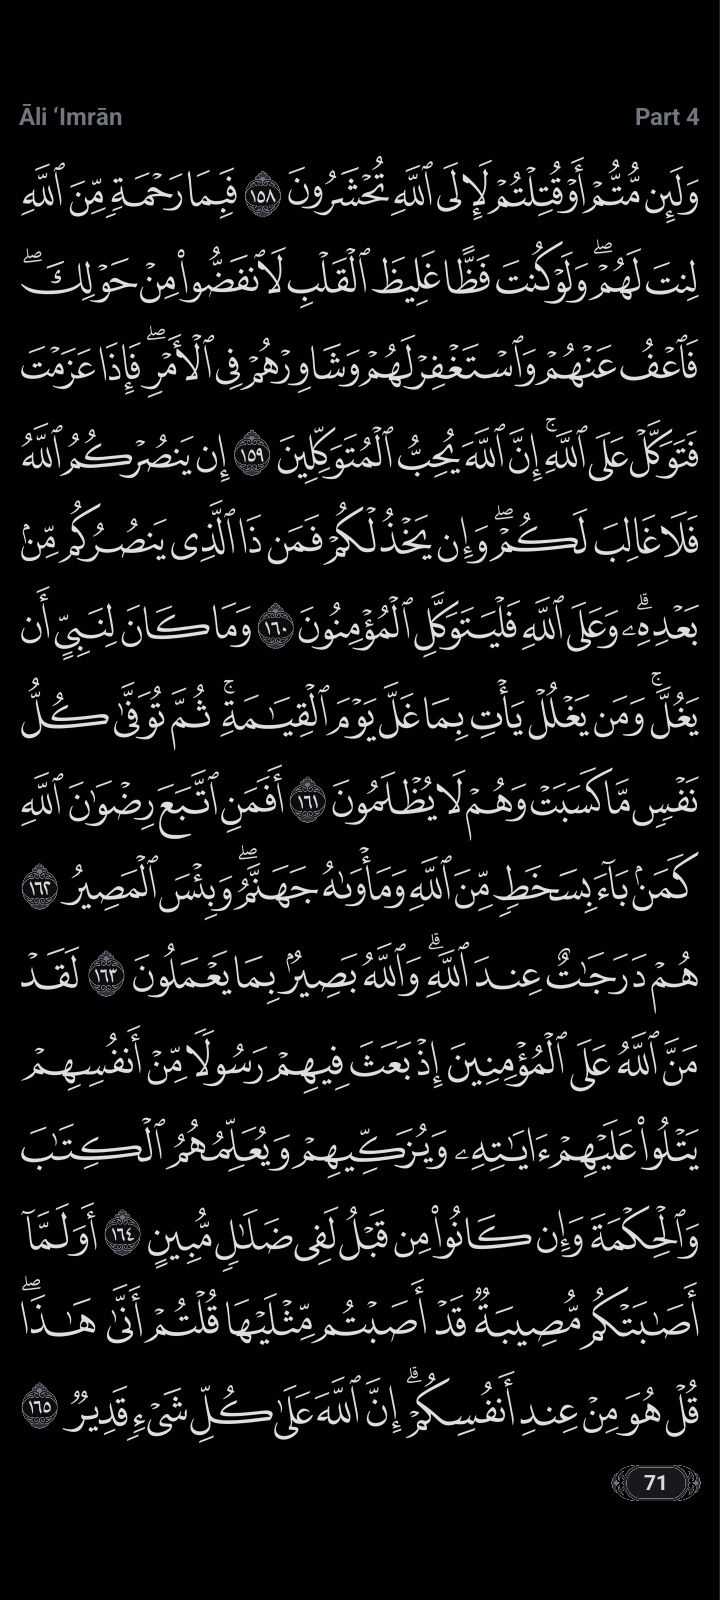 Āli ‘Imrān
Part 4
وَلَئِن مُّتُّمْ أَوْ قُتِلْتُمْ لَإِلَى ٱللَّهِ تُحْشَرُونَ ١٥٨ فَبِمَا رَحْمَةٍ مِّنَ ٱللَّهِ
لِنتَ لَهُمْ ۖ وَلَوْ كُنتَ فَظًّا غَلِيظَ ٱلْقَلْبِ لَٱنفَضُّوا۟ مِنْ حَوْلِكَ ۖ
فَٱعْفُ عَنْهُمْ وَٱسْتَغْفِرْ لَهُمْ وَشَاوِرْهُمْ فِى ٱلْأَمْرِ ۖ فَإِذَا عَزَمْتَ
فَتَوَكَّلْ عَلَى ٱللَّهِ ۚ إِنَّ ٱللَّهَ يُحِبُّ ٱلْمُتَوَكِّلِينَ ١٥٩ إِن يَنصُرْكُمُ ٱللَّهُ
فَلَا غَالِبَ لَكُمْ ۖ وَإِن يَخْذُلْكُمْ فَمَن ذَا ٱلَّذِى يَنصُرُكُم مِّنۢ
بَعْدِهِۦ ۗ وَعَلَى ٱللَّهِ فَلْيَتَوَكَّلِ ٱلْمُؤْمِنُونَ ١٦٠ وَمَا كَانَ لِنَبِىٍّ أَن
يَغُلَّ ۚ وَمَن يَغْلُلْ يَأْتِ بِمَا غَلَّ يَوْمَ ٱلْقِيَـٰمَةِ ۚ ثُمَّ تُوَفَّىٰ كُلُّ
نَفْسٍ مَّا كَسَبَتْ وَهُمْ لَا يُظْلَمُونَ ١٦١ أَفَمَنِ ٱتَّبَعَ رِضْوَٰنَ ٱللَّهِ
كَمَنۢ بَآءَ بِسَخَطٍ مِّنَ ٱللَّهِ وَمَأْوَىٰهُ جَهَنَّمُ ۖ وَبِئْسَ ٱلْمَصِيرُ ١٦٢
هُمْ دَرَجَـٰتٌ عِندَ ٱللَّهِ ۗ وَٱللَّهُ بَصِيرٌۢ بِمَا يَعْمَلُونَ ١٦٣ لَقَدْ
مَنَّ ٱللَّهُ عَلَى ٱلْمُؤْمِنِينَ إِذْ بَعَثَ فِيهِمْ رَسُولًا مِّنْ أَنفُسِهِمْ
يَتْلُوا۟ عَلَيْهِمْ ءَايَـٰتِهِۦ وَيُزَكِّيهِمْ وَيُعَلِّمُهُمُ ٱلْكِتَـٰبَ
وَٱلْحِكْمَةَ وَإِن كَانُوا۟ مِن قَبْلُ لَفِى ضَلَـٰلٍ مُّبِينٍ ١٦٤ أَوَلَمَّآ
أَصَـٰبَتْكُم مُّصِيبَةٌ قَدْ أَصَبْتُم مِّثْلَيْهَا قُلْتُمْ أَنَّىٰ هَـٰذَا ۖ
قُلْ هُوَ مِنْ عِندِ أَنفُسِكُمْ ۗ إِنَّ ٱللَّهَ عَلَىٰ كُلِّ شَىْءٍ قَدِيرٌ ١٦٥
71